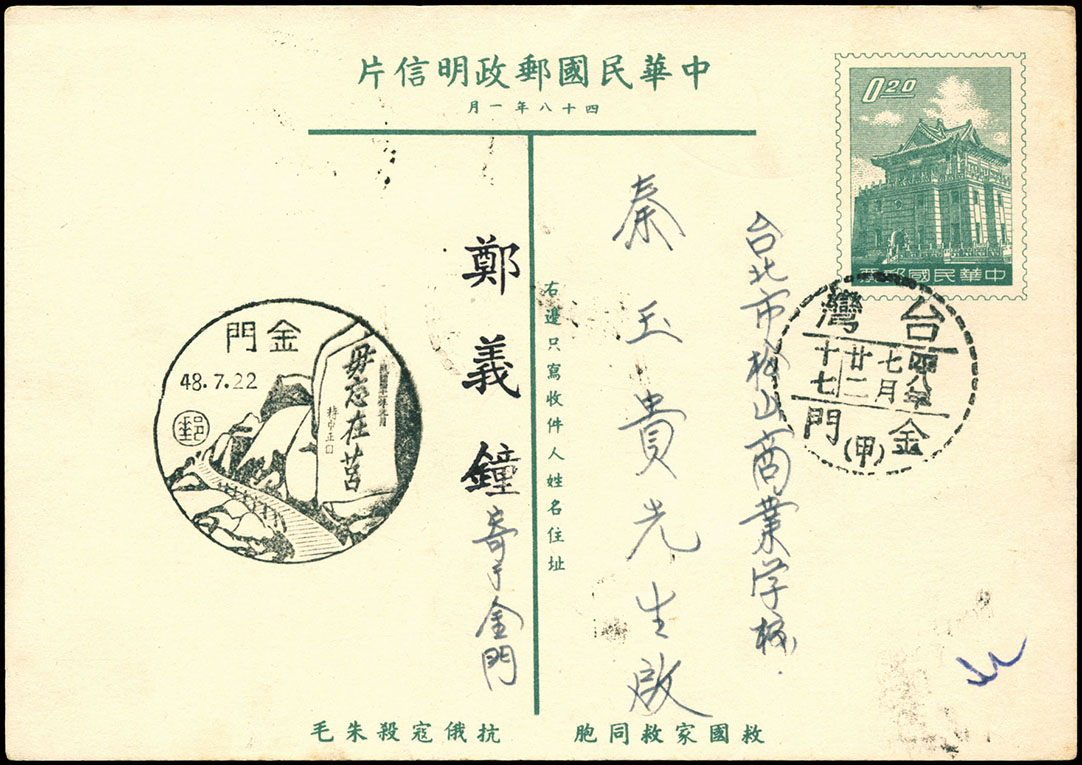 中華民國郵政明信片
四十八年一月
0.20
中華民國郵政
台灣
四八年
七月
廿二
十七
金門
(甲)
台北市松山商業学校
秦玉貴先生啟
右邊只寫收件人姓名住址
鄭義鐘寄于金門
金門
48.7.22
郵
毋忘在莒
蔣中正
救國家救同胞
抗俄寇殺朱毛
北